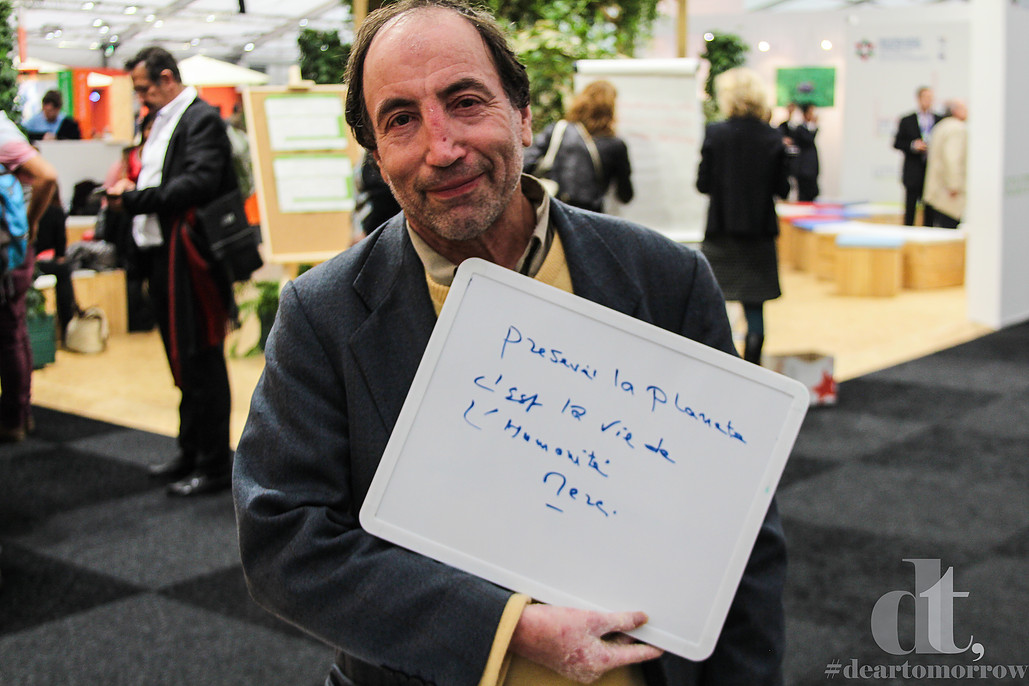 Preservé la planeta
c'est la vie de
L'Humanité
Merci.
dt,
#deartomorrow